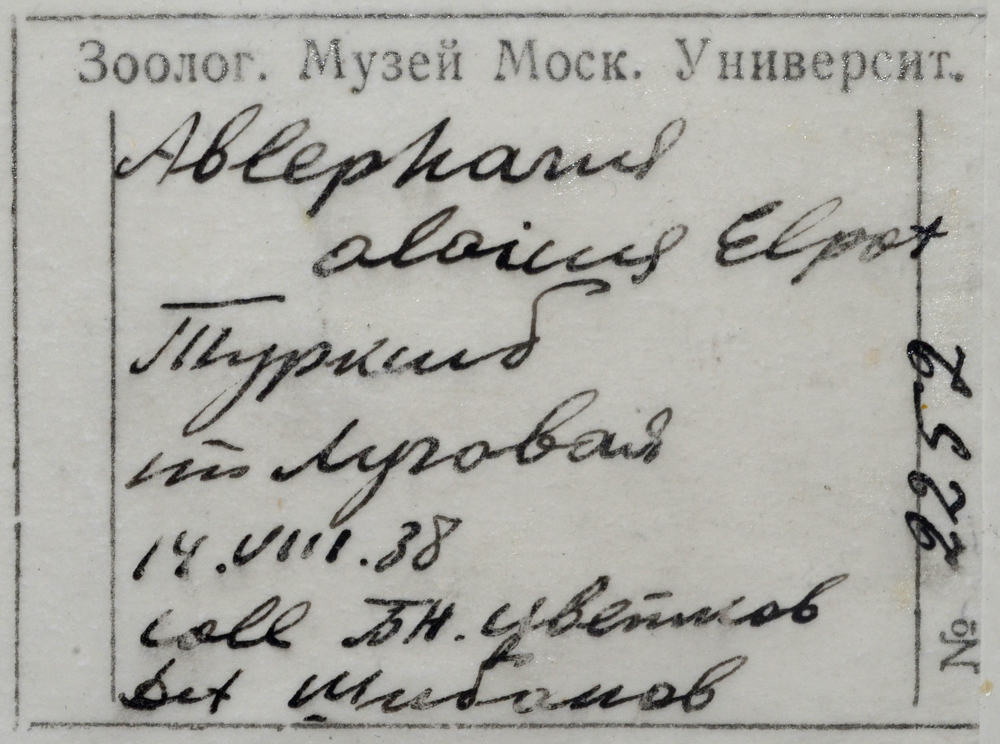 Зоолог. Музей Моск. Университ.
Ablepharus
alaicus Elpat
Туркsиб
ст Луговая
14.VIII.38
coll Б.Н. Цветков
Det Шибанов
№